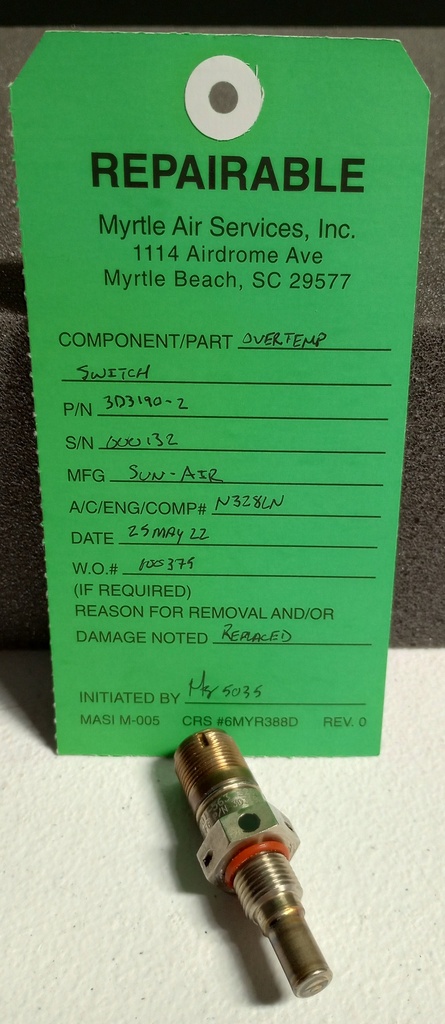 REPAIRABLE
Myrtle Air Services, Inc.
1114 Airdrome Ave
Myrtle Beach, SC 29577
COMPONENT/PART OVERTEMP
SWITCH
P/N 3D3190-2
S/N 000132
MFG SUN-AIR
A/C/ENG/COMP# N328LN
DATE 25 MAY 22
W.O.# 100375
(IF REQUIRED)
REASON FOR REMOVAL AND/OR
DAMAGE NOTED REPLACED
INITIATED BY 5035
MASI M-005 CRS #6MYR388D REV. 0